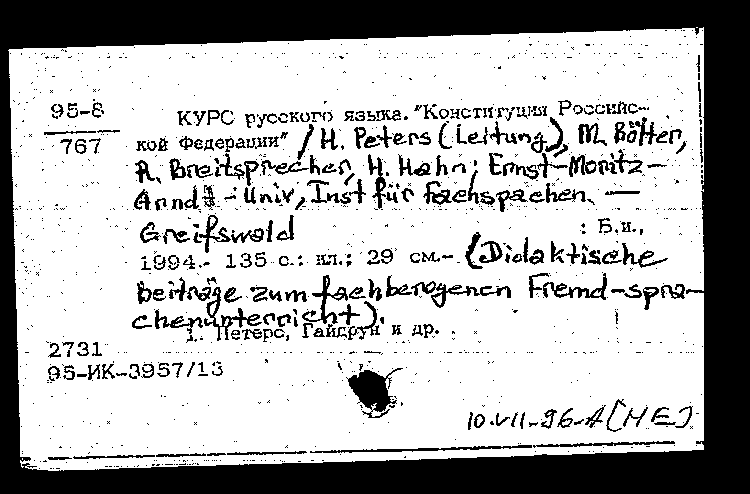 95-8
767
КУРС русского языка. "Конституция Российс-
кой Федерации" / H. Peters (Leitung), M. Bötter,
R. Breitsprecher, H. Hahn; Ernst-Moritz-
Arndt - Univ, Inst für Fachspachen. —
Greifswald : Б.и.,
1994.- 135 с.: ил.; 29 см.- (Didaktische
Beiträge zum fachbezogenen Fremd-spra-
chenunterricht).
1. Петерс, Гайдрун и др.
2731
95-ИК-3957/13
10.VII-96-A (HE)